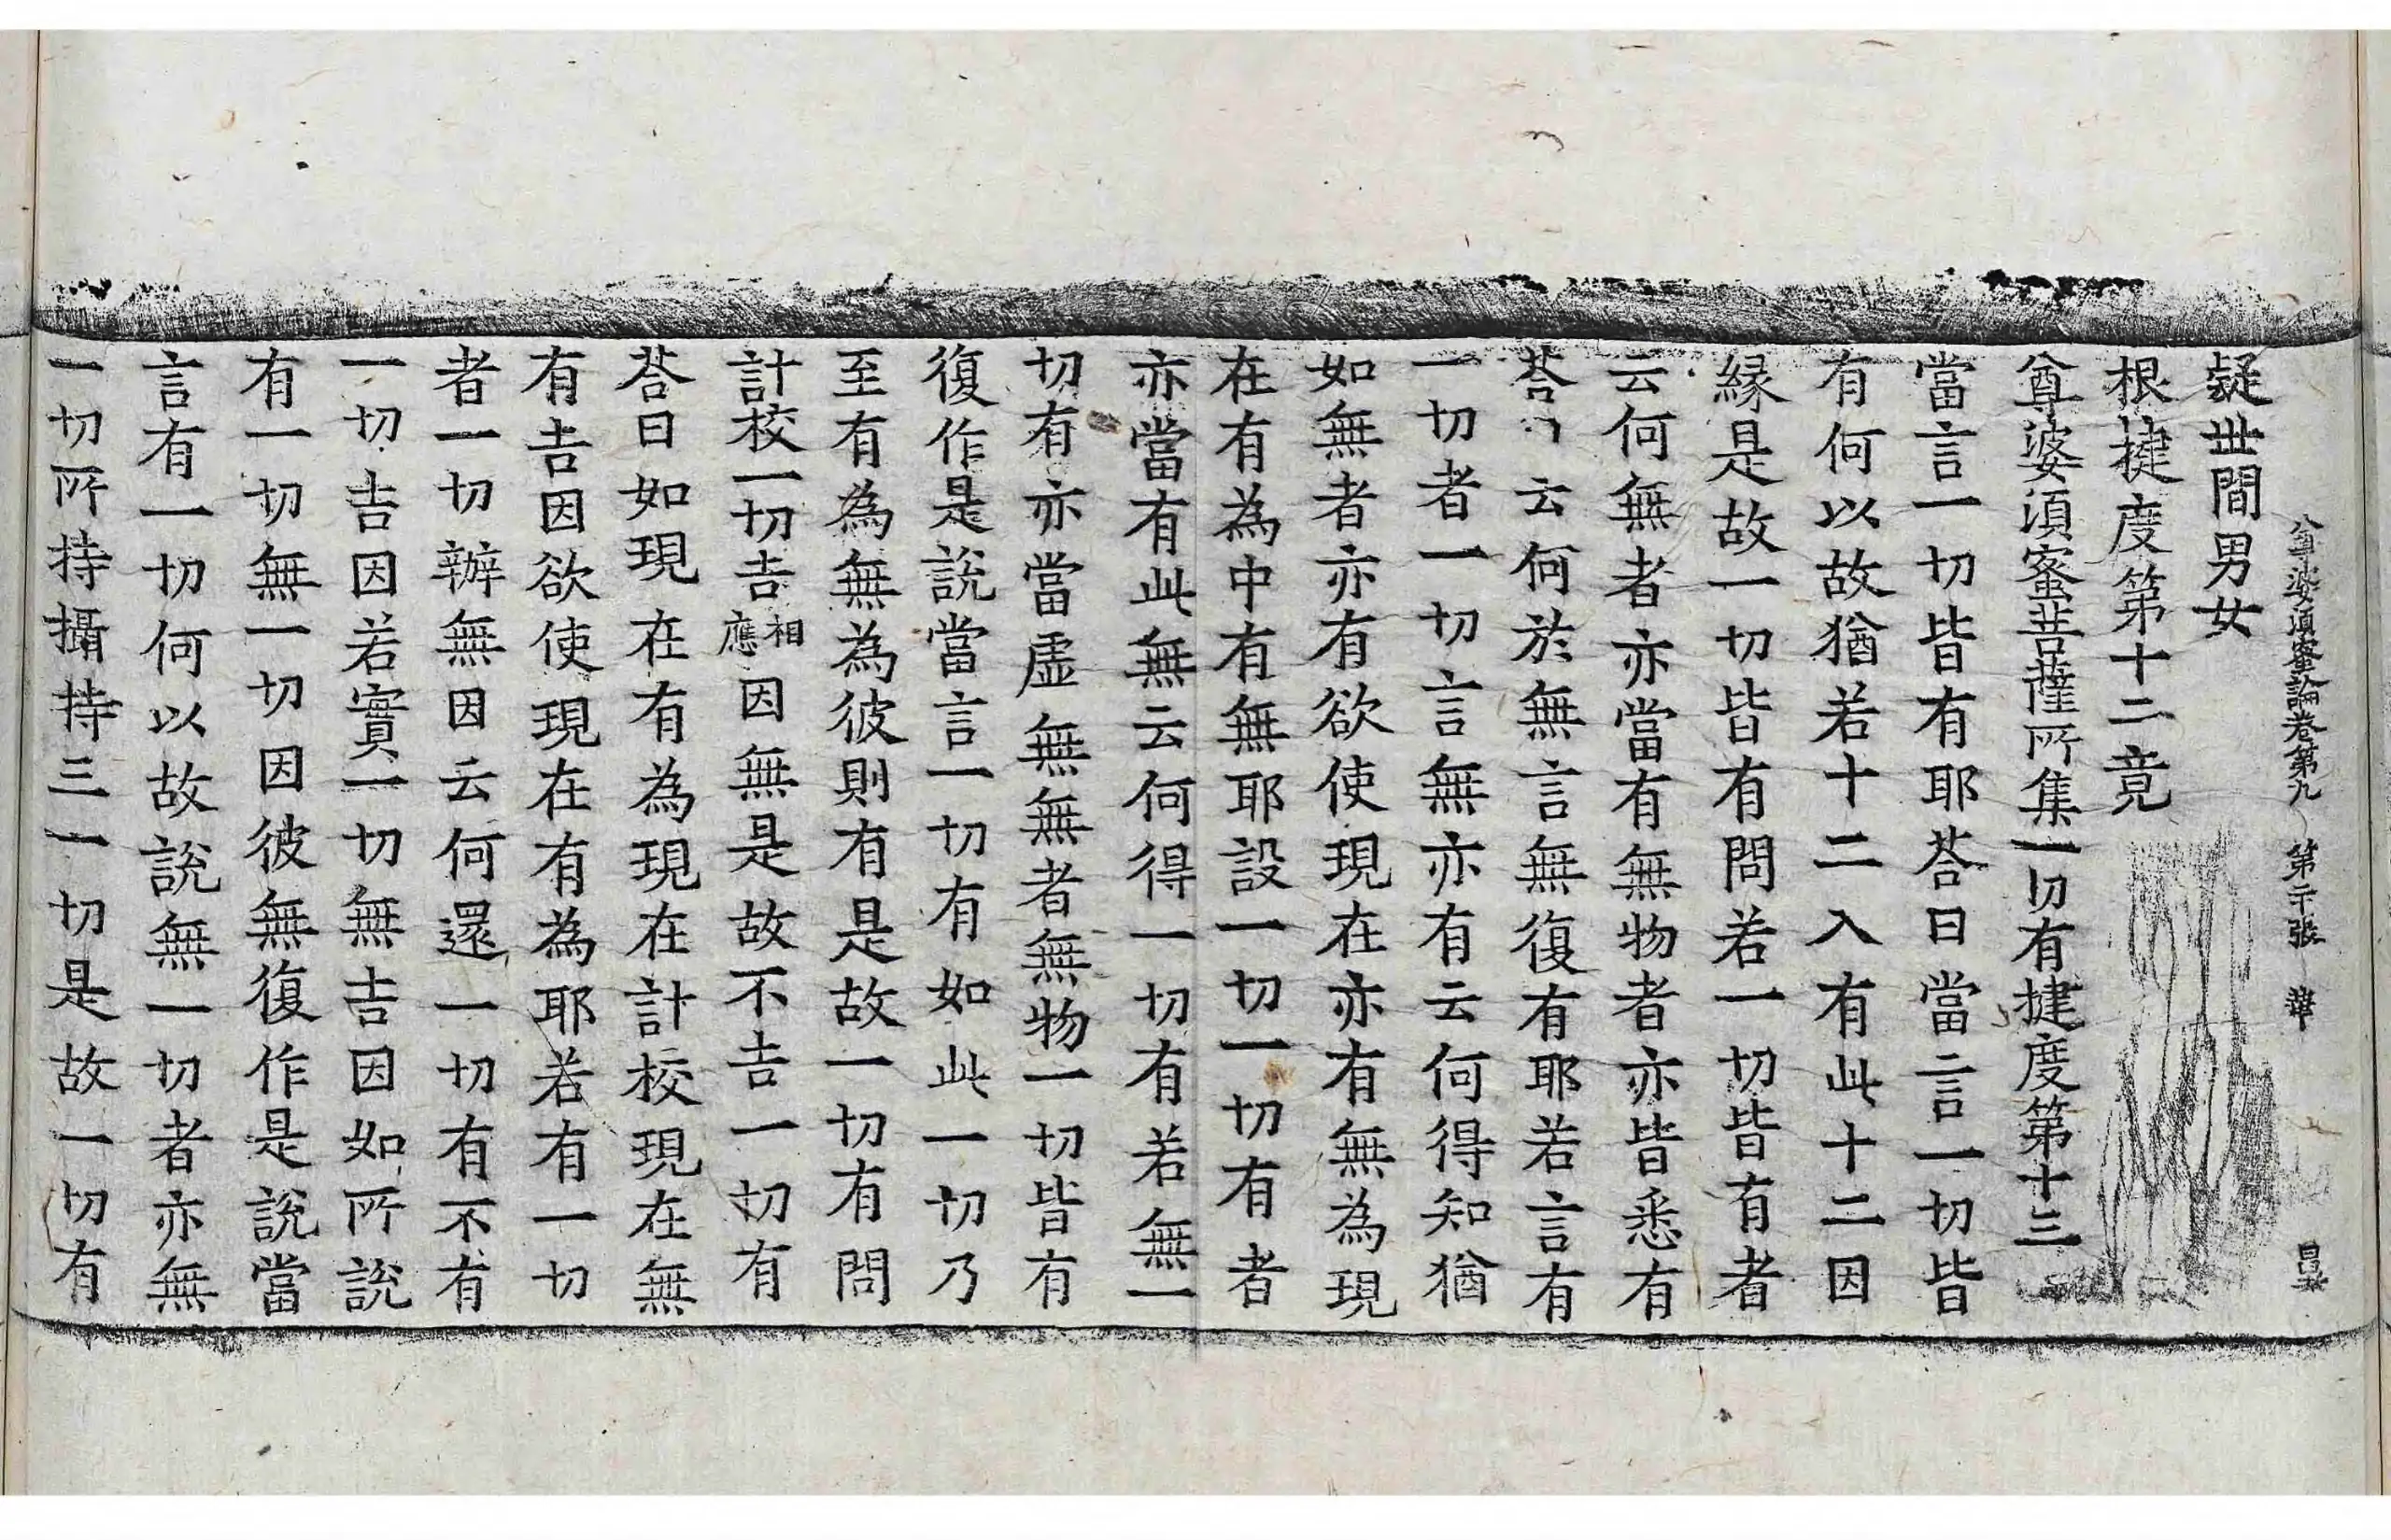 尊婆須蜜論卷第九　第二十張　華
疑世間男女
根揵度第十二竟
尊婆須蜜菩薩所集一切有揵度第十三
當言一切皆有耶荅曰當言一切皆
有何以故猶若十二入有此十二因
緣是故一切皆有問若一切皆有者
云何無者亦當有無物者亦皆悉有
荅曰云何於無言無復有耶若言有
一切者一切言無亦有云何得知猶
如無者亦有欲使現在亦有無為現
在有為中有無耶設一切一切有者
亦當有此無云何得一切有若無一
切有亦當虛無無者無物一切皆有
復作是說當言一切有如此一切乃
至有為無為彼則有是故一切有問
計校一切吉相應因無是故不吉一切有
荅曰如現在有為現在計校現在無
有吉因欲使現在有為耶若有一切
者一切辦無因云何還一切有不有
一切吉因若實一切無吉因如所說
有一切無一切因彼無復作是說當
言有一切何以故說無一切者亦無
一切所持攝持三一切是故一切有